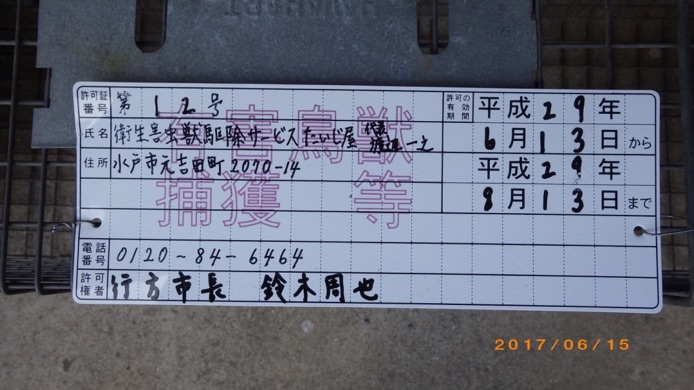 許可証番号 第 12 号
許可の有効期間 平成29年6月13日から
平成29年8月13日まで
氏名 衛生害虫獣駆除サービスたいじ屋 代表 渡辺一之
住所 水戸市元吉田町2070-14
有害鳥獣
捕獲等
電話番号 0120-84-6464
許可権者 行方市長 鈴木周也
2017/06/15